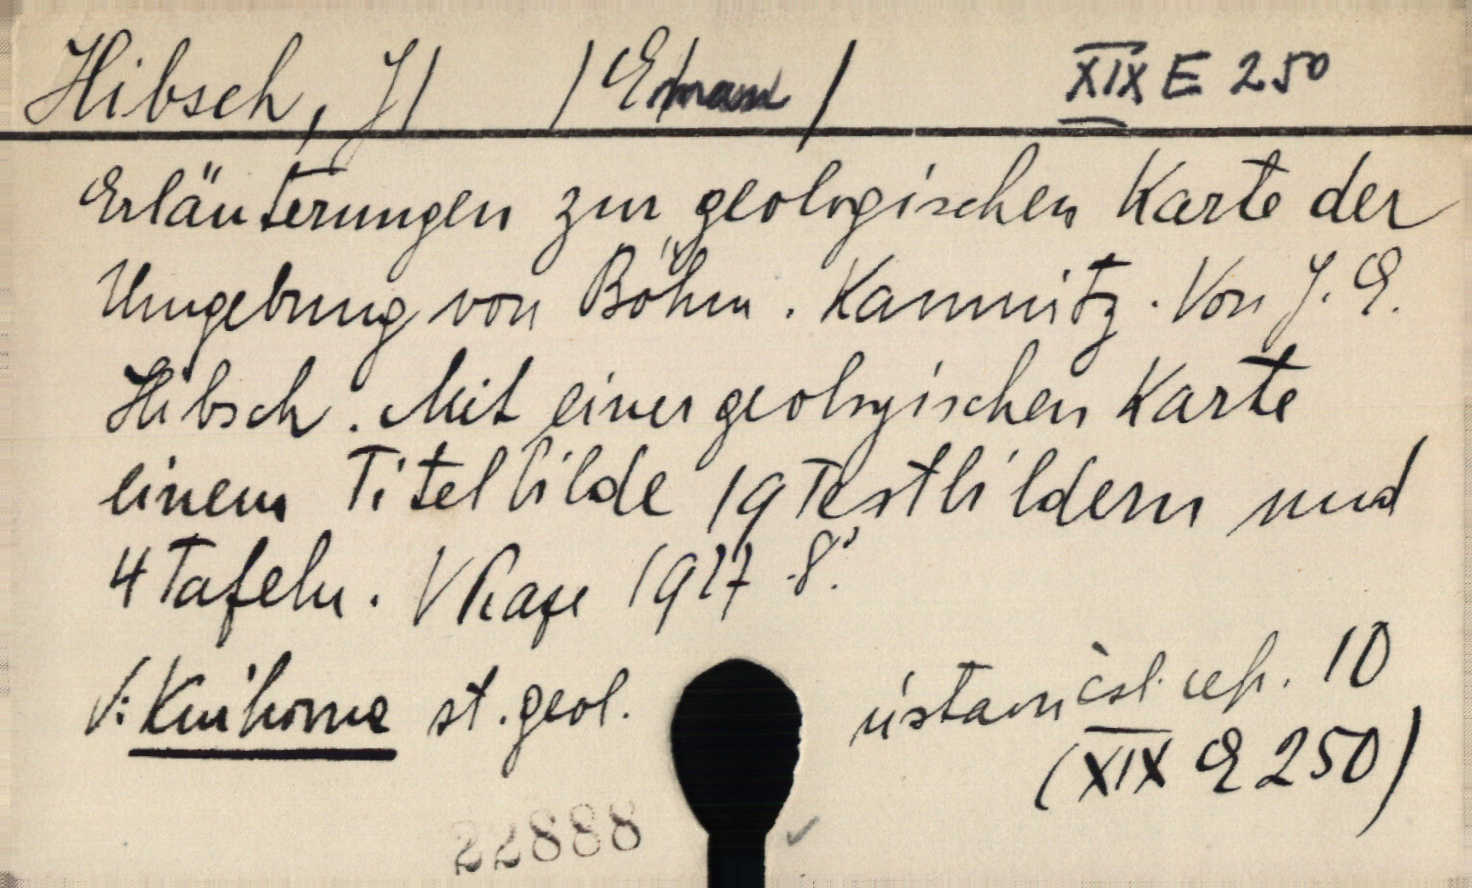 Hibsch, J/ /Emanuel/ XIX E 250
Erläuterungen zur geologischen Karte der
Umgebung von Böhm. Kamnitz. Von J. E.
Hibsch. Mit einer geologischen Karte
einem Titelbilde 19 Textbildern und
4 Tafeln. V Praze 1927 8°.
V: Knihovna st. geol. ústavu čsl. rep. 10
(XIX E 250)
22888